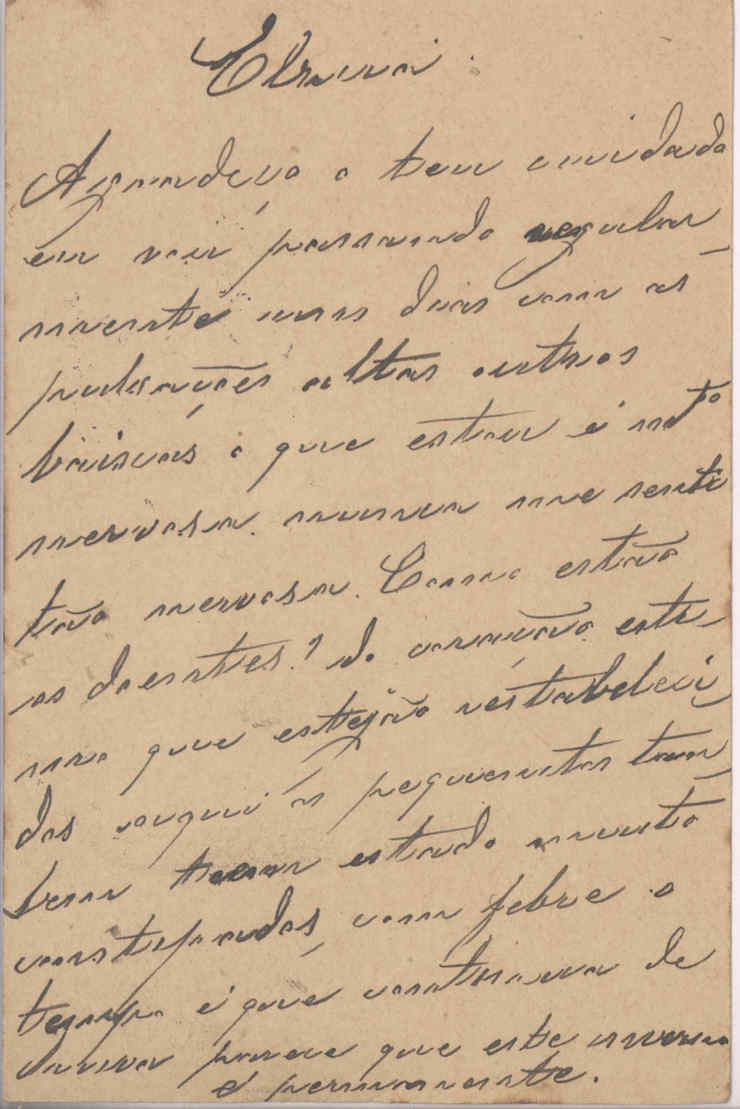 Elvira
Agradeço o teu cuidado
eu vou passando regular-
mente uns dias com as
pulsações altas outros
baixas o que estou é mto
nervosa. nunca me senti
tão nervosa. Como estão
os doentes? do coração esti-
mo que estejão restabeleci-
dos cá aqui as pequenitas tam-
bem teem estado muito
constipadas, com febre o
tempo é que continua de
chuva parece que este inverno
é permanente.